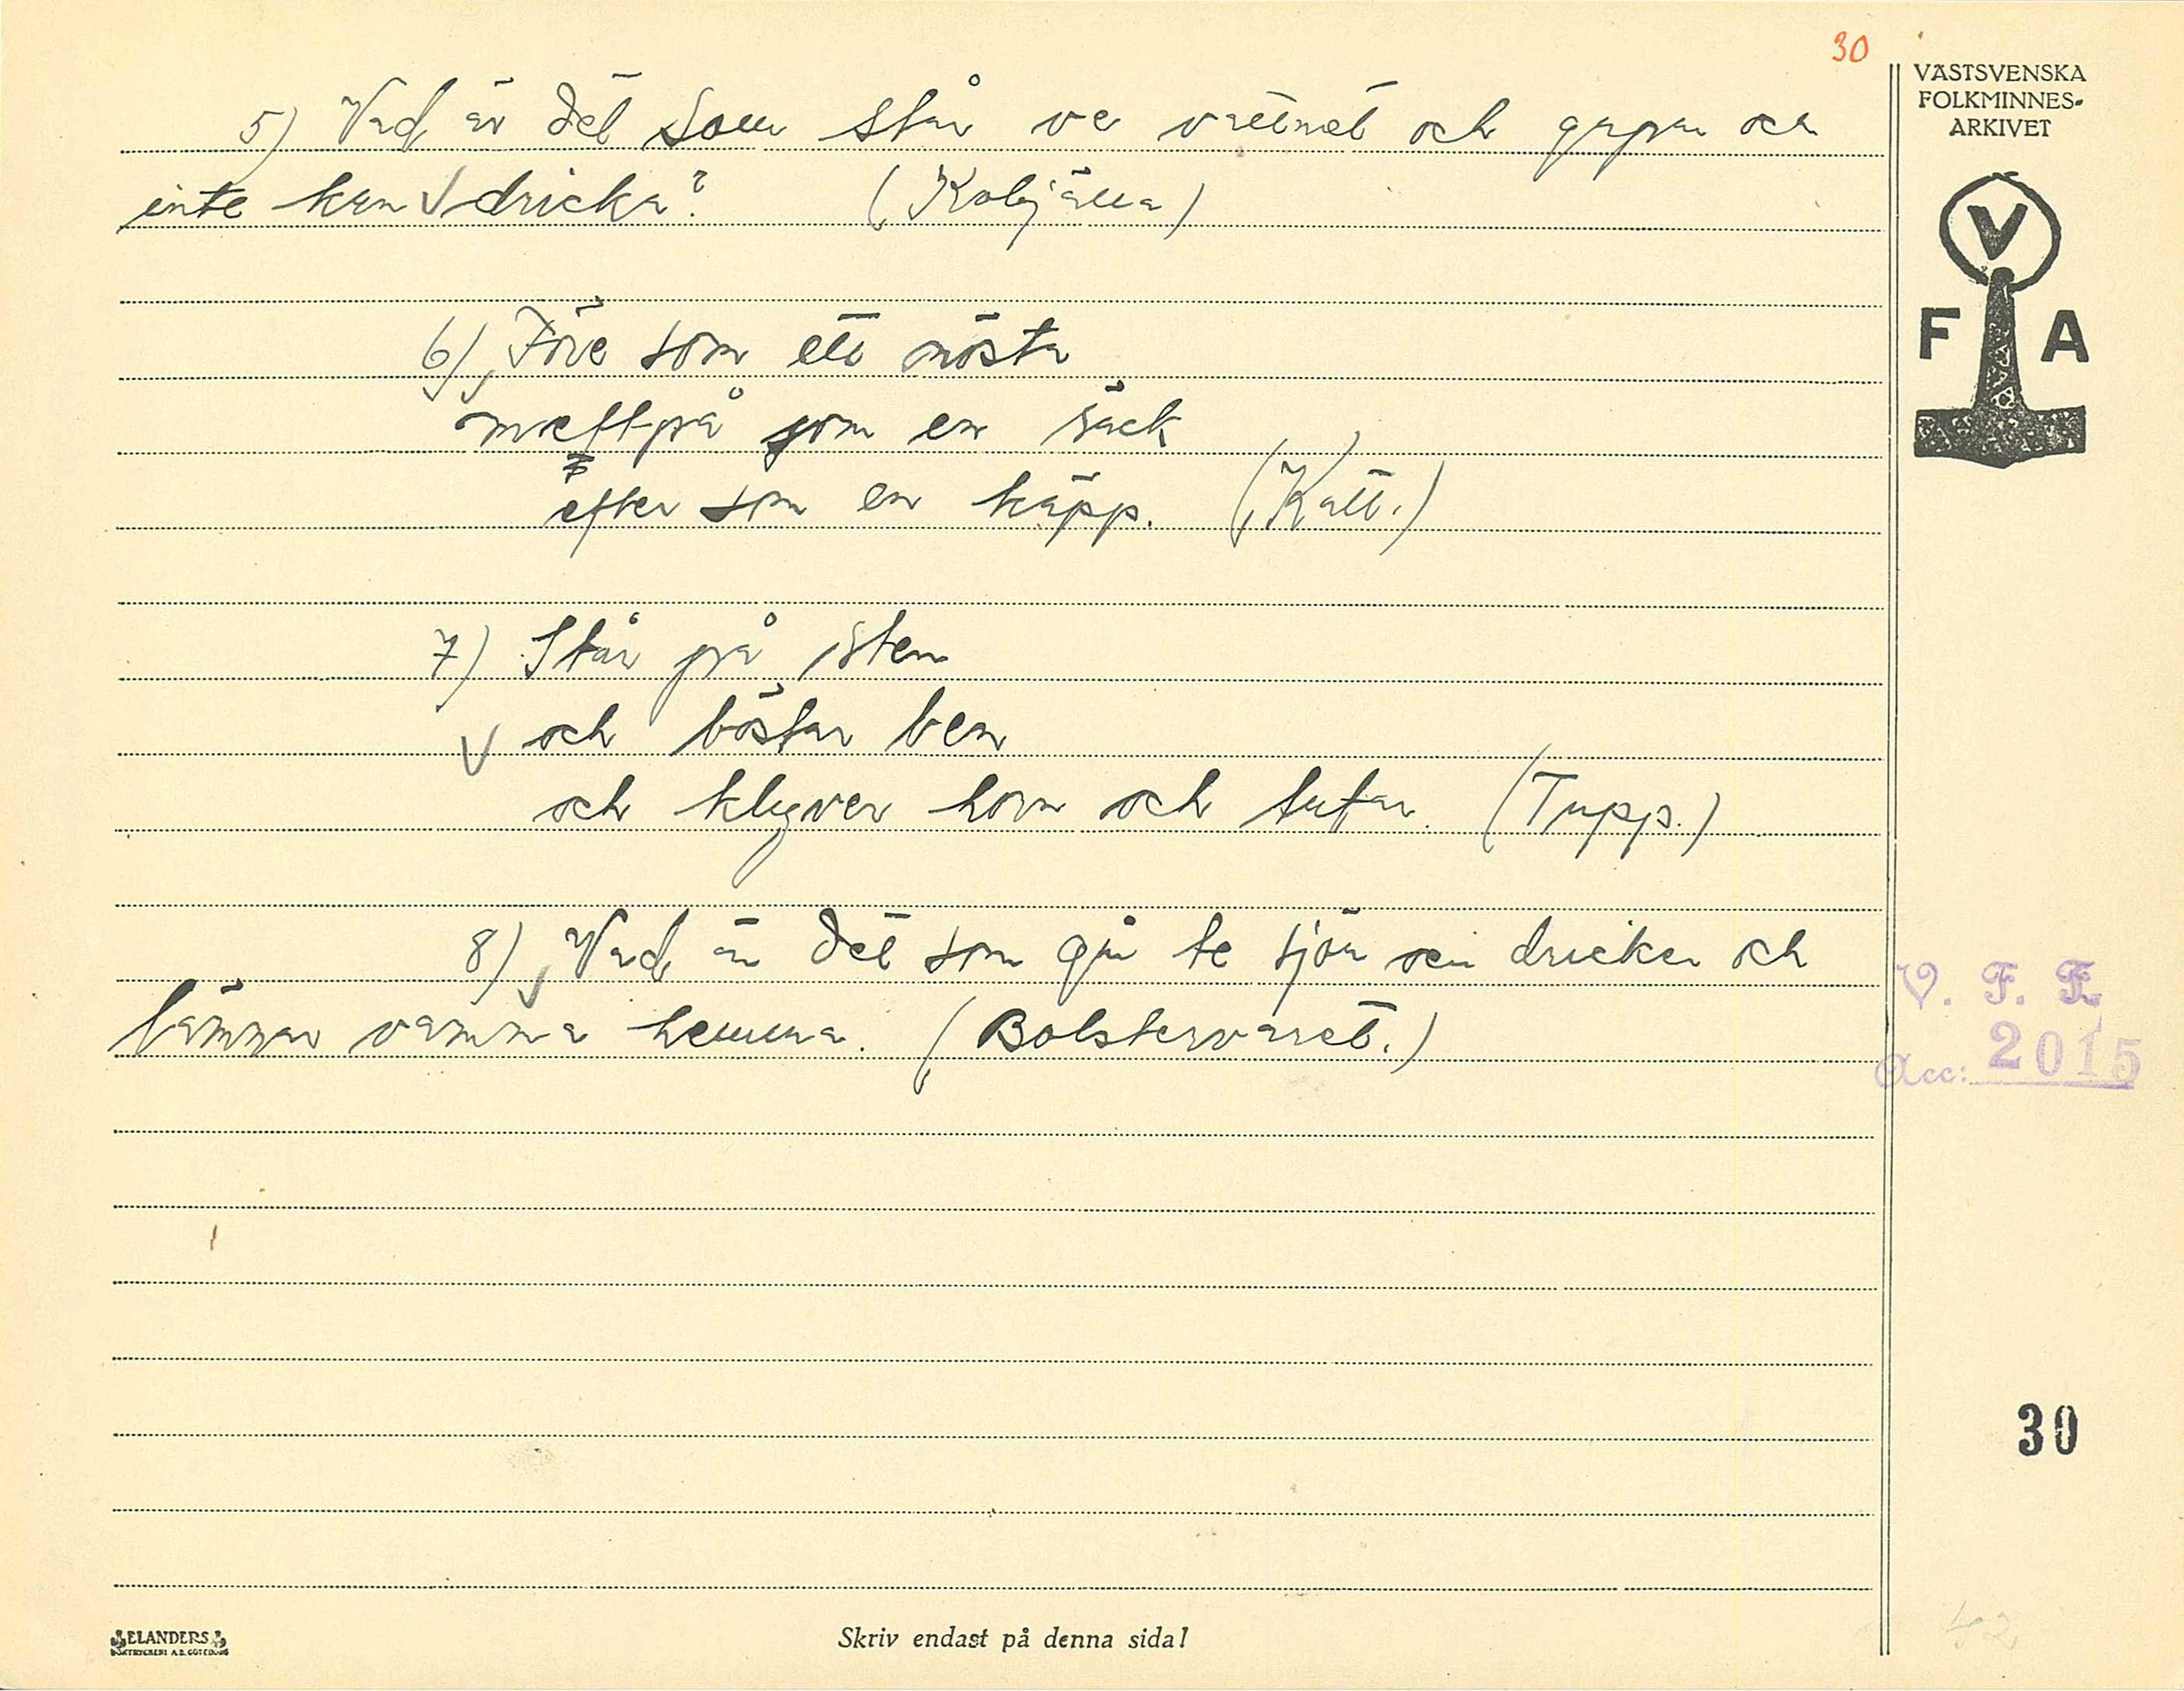 30
VÄSTSVENSKA
FOLKMINNES-
ARKIVET
V
F A
5) Vad är det som står ve vattnet och gapar och
inte kan dricka? (Kobjälla)
6) Före som ett nösta
mettpå som en säck
efter som en käpp. (Katt.)
7) Står på sten
och böstar ben
och klyver horn och tutar. (Tupp.)
8) Vad är det som går te sjön och dricker och
lämnar vamma hemma. (Bolstervaret.)
V. F. F.
Acc: 2015
30
42
ELANDERS
BOKTRYCKERI A.B. GÖTEBORG
Skriv endast på denna sida!